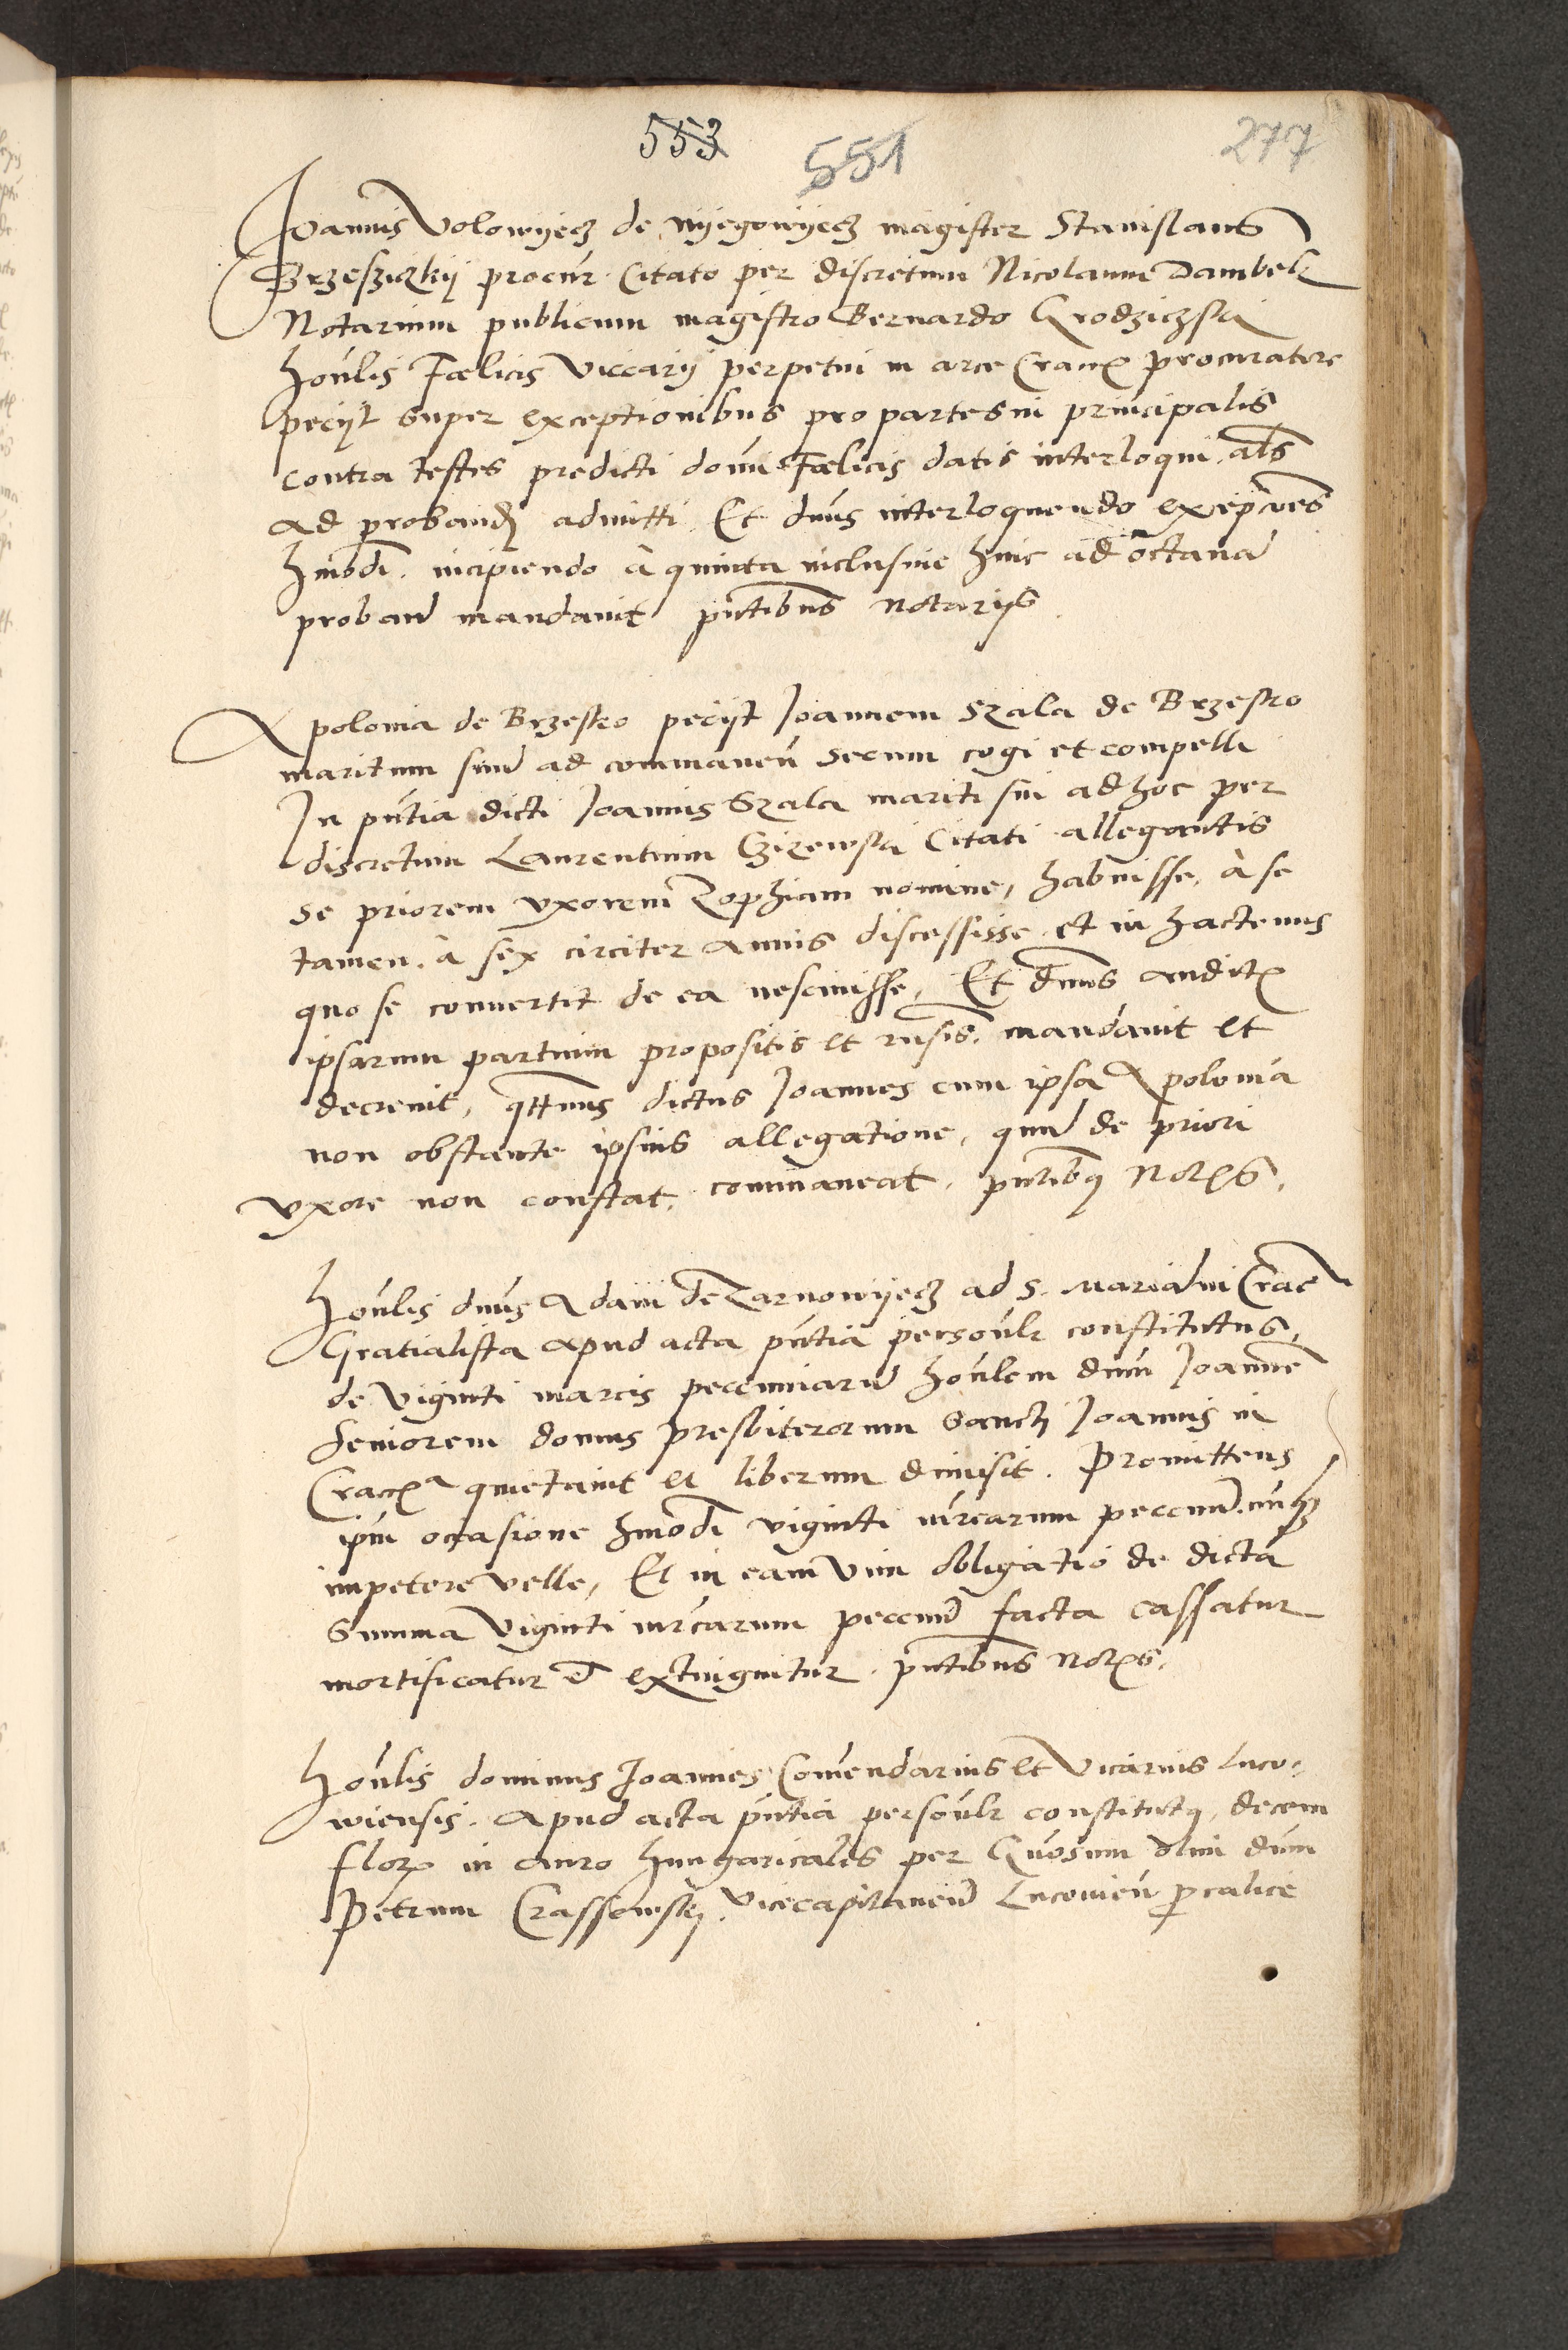 553 551 277
Joannis Volowyecz de nyegowyecz magister Stanislaus
Brzesziczkÿ procur. Citato per discretum Nicolaum Dambek
Notarium publicum magistro Bernardo Grodziczski
honlis Fœlicis Viccarij perpetui in arce Crac procuratore
peciit super exceptionibus pro parte sui principalis
contra testes predicti domi Fœlicis datis interloqui als
ad proband admitti. Et dnus interloquendo excepcnes
hmodi. incipiendo à quinta inclusiue hinc ad octauã
proband mandauit pntibus notarijs.
Apolonia de Brzesko peciit Joannem Szala de Brzesko
maritum suũ ad commaneñ secum cogi et compelli
In pntia dicti Joannis Szala mariti sui ad hoc per
discretum Laurentium citati allegantis
se priorem vxorem Zophiam nomine, habuisse, à se
tamen. à sex circiter annis discessisse et in hactenus
quo se conuertit de ea nesciuisse, Et dnus audit
ipsarum partium propositis et rnsis. mandauit et
decreuit, qtenus dictus Joannes cum ipsa Apolonia
non obstante ipsius allegatione, quũ de priori
vxore non constat. commaneat. pntibus Notrs.
Honlis dnus Adam de Tarnowyecz ad S. Mariã in Crac
Gratialista apud acta pntia personlr constitutus,
de viginti marcis pecuniarũ honlem dnm Joannẽ
Seniorem domus presbiterorum Sancti Joannis in
Crac quietauit et liberum dimisit. Promittens
ipm occasione hmodi viginti mrcarum pecuniã. nunq
impetere velle, Et in eam vim obligatio de dicta
Summa viginti mrcarum pecuniã facta cassatur
mortificatur et extinguitur. pntibus Notrs.
Honlis dominus Joannes Comendarius et Vicarius Luco-
wiensis. apud acta pntia personlr constitutus, decem
flor in auro hungaricales per Gnosum olim dnm
Petrum Crassowskÿ. vicecapitaneũ Lucouieñ pro calice